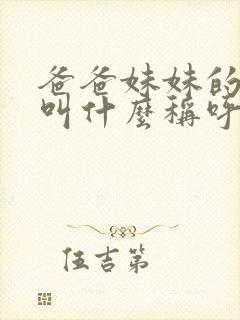 爸爸妹妹的
叫什麼稱呼
伍吉第